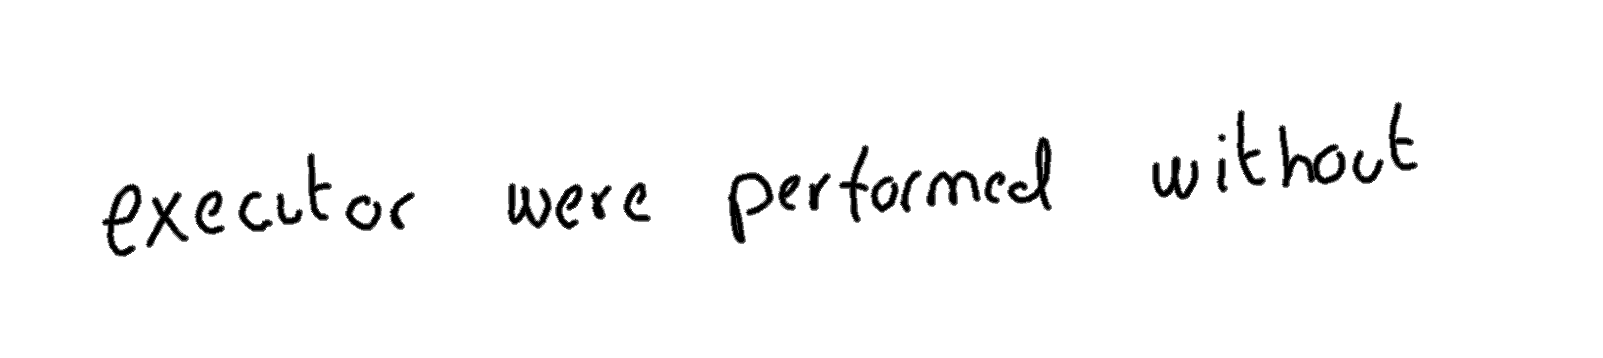 executor were performed without